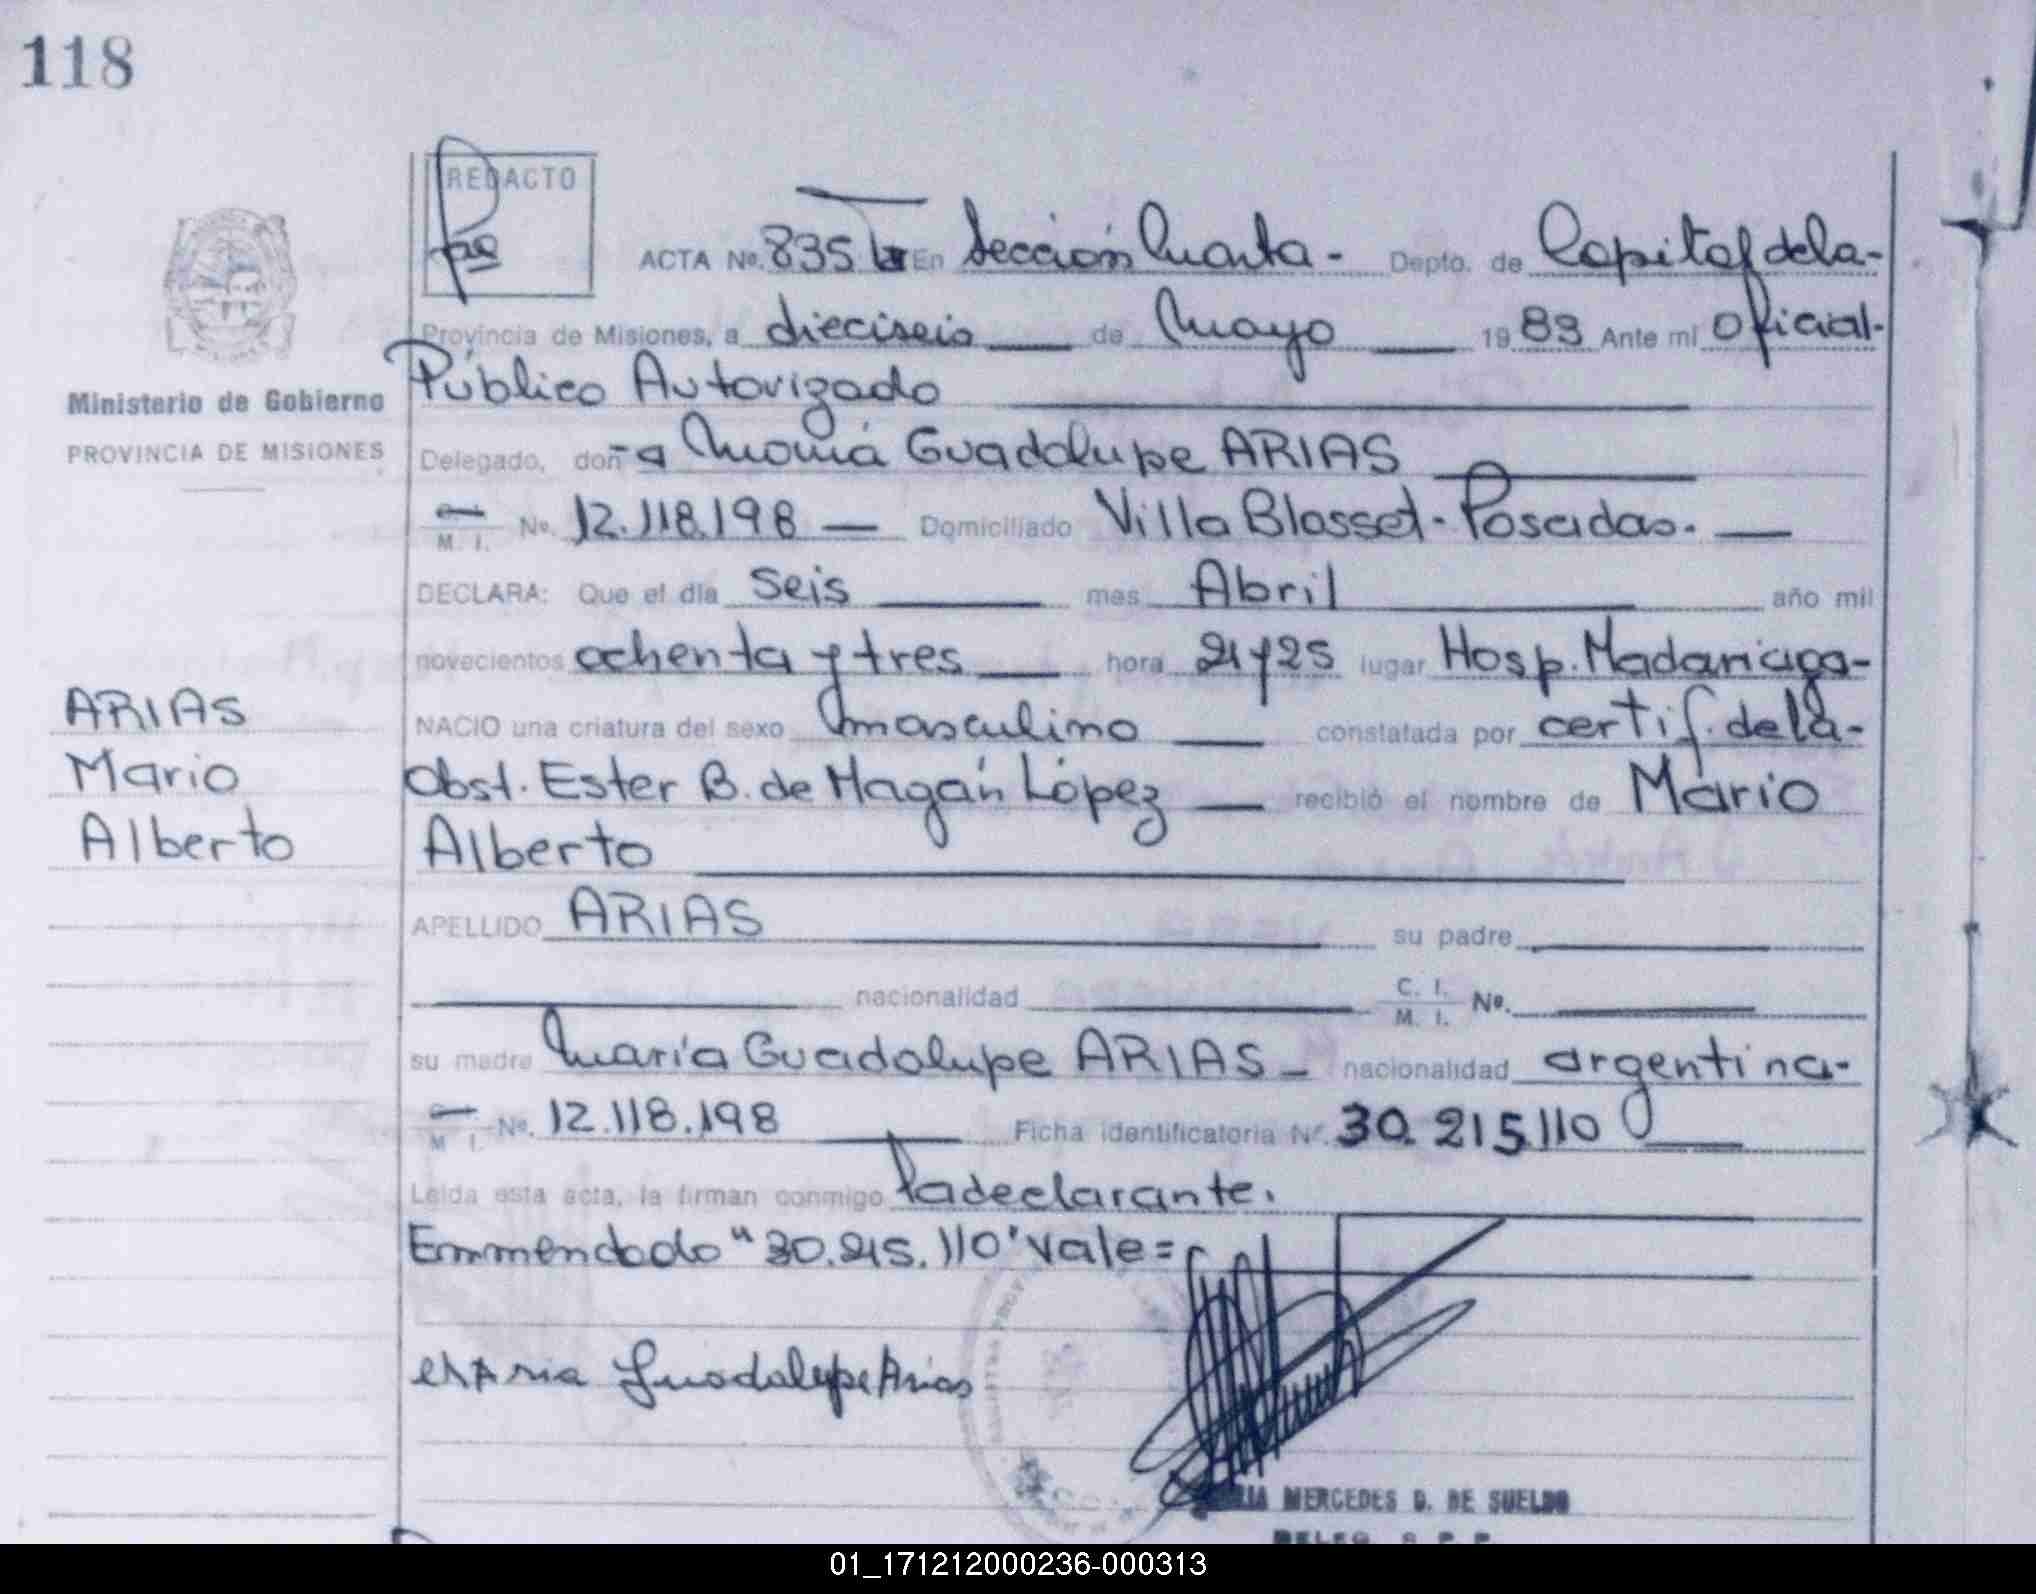 118
REDACTO
ACTA Nº. 835 En Sección Cuarta - Depto. de Capital de la-
Provincia de Misiones, a dieciseis de Mayo 19 83 Ante mi oficial-
Público Autorizado
Ministerio de Gobierno
PROVINCIA DE MISIONES
Delegado, doñ-a María Guadalupe ARIAS
M. I. Nº. 12.118.198 Domiciliado Villa Blosset - Posadas.
DECLARA: Que el día seis mes Abril año mil
novecientos ochenta y tres hora 21 y 25 lugar Hosp. Madariaga-
ARIAS
NACIO una criatura del sexo masculino constatada por certif. de la-
Mario
Obst. Ester B. de Magán López recibió el nombre de Mario
Alberto
Alberto
APELLIDO ARIAS su padre
nacionalidad C. I. M. I. Nº.
su madre María Guadalupe ARIAS - nacionalidad argentina-
M I. Nº. 12.118.198 Ficha identificatoria Nº. 30.215.110
Leída esta acta, la firman conmigo la declarante.
Emmendado "30.215.110" vale =
María Guadalupe Arias
MERCEDES D. DE SUELDO
DELEG. R. P. P.
01_171212000236-000313